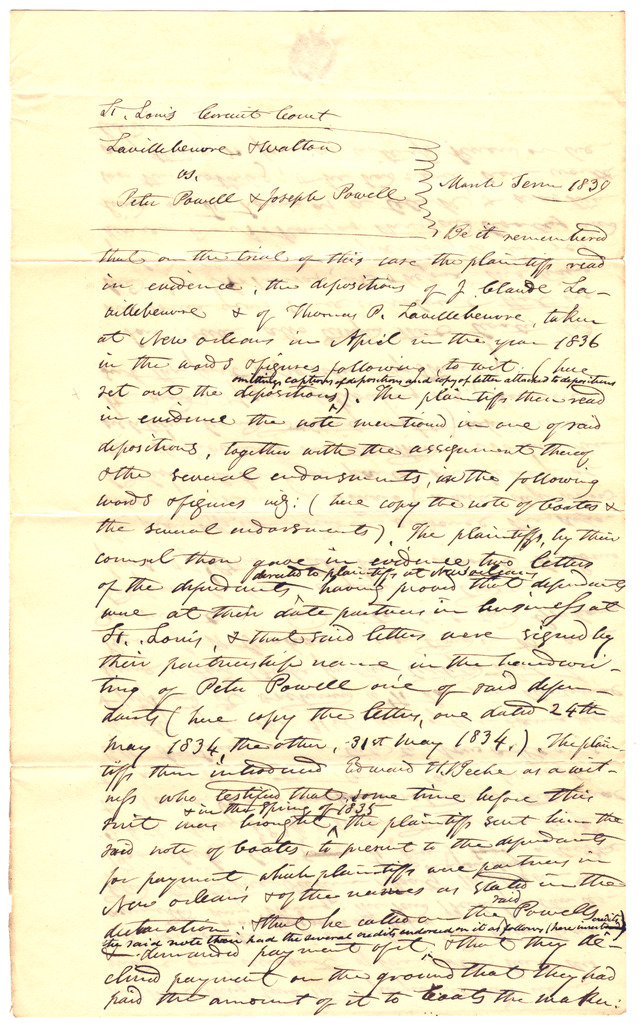 St. Louis Circuit Court
Lavillebeuvre & Walton
vs.
Peter Powell & Joseph Powell
March Term 1839
Be it remembered
that on the trial of this case the plaintiffs read
in evidence, the depositions of J. Claude La-
villebeuvre & of Thomas P. Lavillebeuvre, taken
at New Orleans in April in the year 1836
in the words & figures following, to wit, (here
omitting captions of depositions and copy of letter attached to depositions
set out the depositions). The plaintiffs then read
in evidence the note mentioned in one of said
depositions, together with the assignment thereof
& the several endorsments, in the following
words & figures viz: (here copy the note of Coates &
the several endorsments). The plaintiffs, by their
counsel then gave in evidence two letters
directed to plaintiffs at New Orleans
of the defendants having proved that defendants
were at their date partners in business at
St. Louis, & that said letters were signed by
their partnership name in the handwri-
ting of Peter Powell one of said defen-
dants (here copy the letters, one dated 24th
May 1834, the other, 31st May 1834.). The plain-
tiffs then introduced Edward H. Beebe as a wit-
ness who testified that, some time before this
& in the Spring of 1835
suit was brought, the plaintiffs sent him the
said note of Coates, to present to the defendants
for payment which plaintiffs are partners in
New Orleans & of the names as stated in the
said
declaration. & that he called on the Powells
credits
said note then had the several credits endorsed on it as follows (here insert
& demanded payment of it, & that they de-
clined payment on the ground that they had
paid the amount of it to Coats the maker: